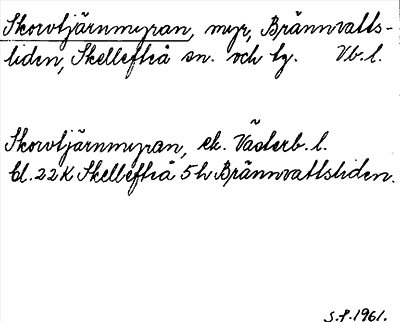 Skorvtjärnmyran, myr, Brännvatts-
liden, Skellefteå sn. och tg. Vb. l.
Skorvtjärnmyran, ek. Västerb. l.
bl. 22K Skellefteå 5h Brännvattsliden.
S.F. 1961.